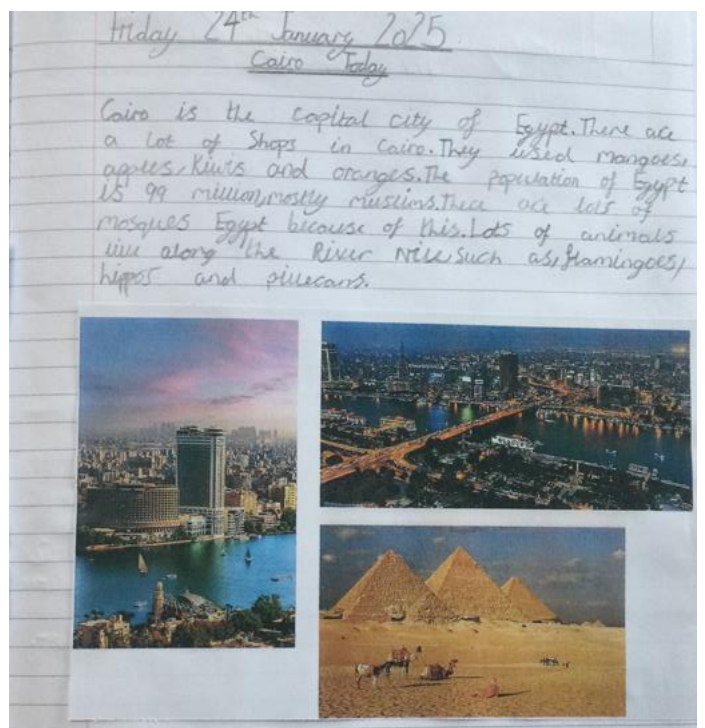 Friday 24th January 2025
Cairo Today
Cairo is the capital city of Egypt. There are
a lot of Shops in Cairo. They used mangoes,
apples, Kiwis and oranges. The population of Egypt
is 99 million, mostly muslims. There are lots of
mosques Egypt because of this. Lots of animals
live along the River Nile, Such as, flamingoes,
hippos and pillecans.